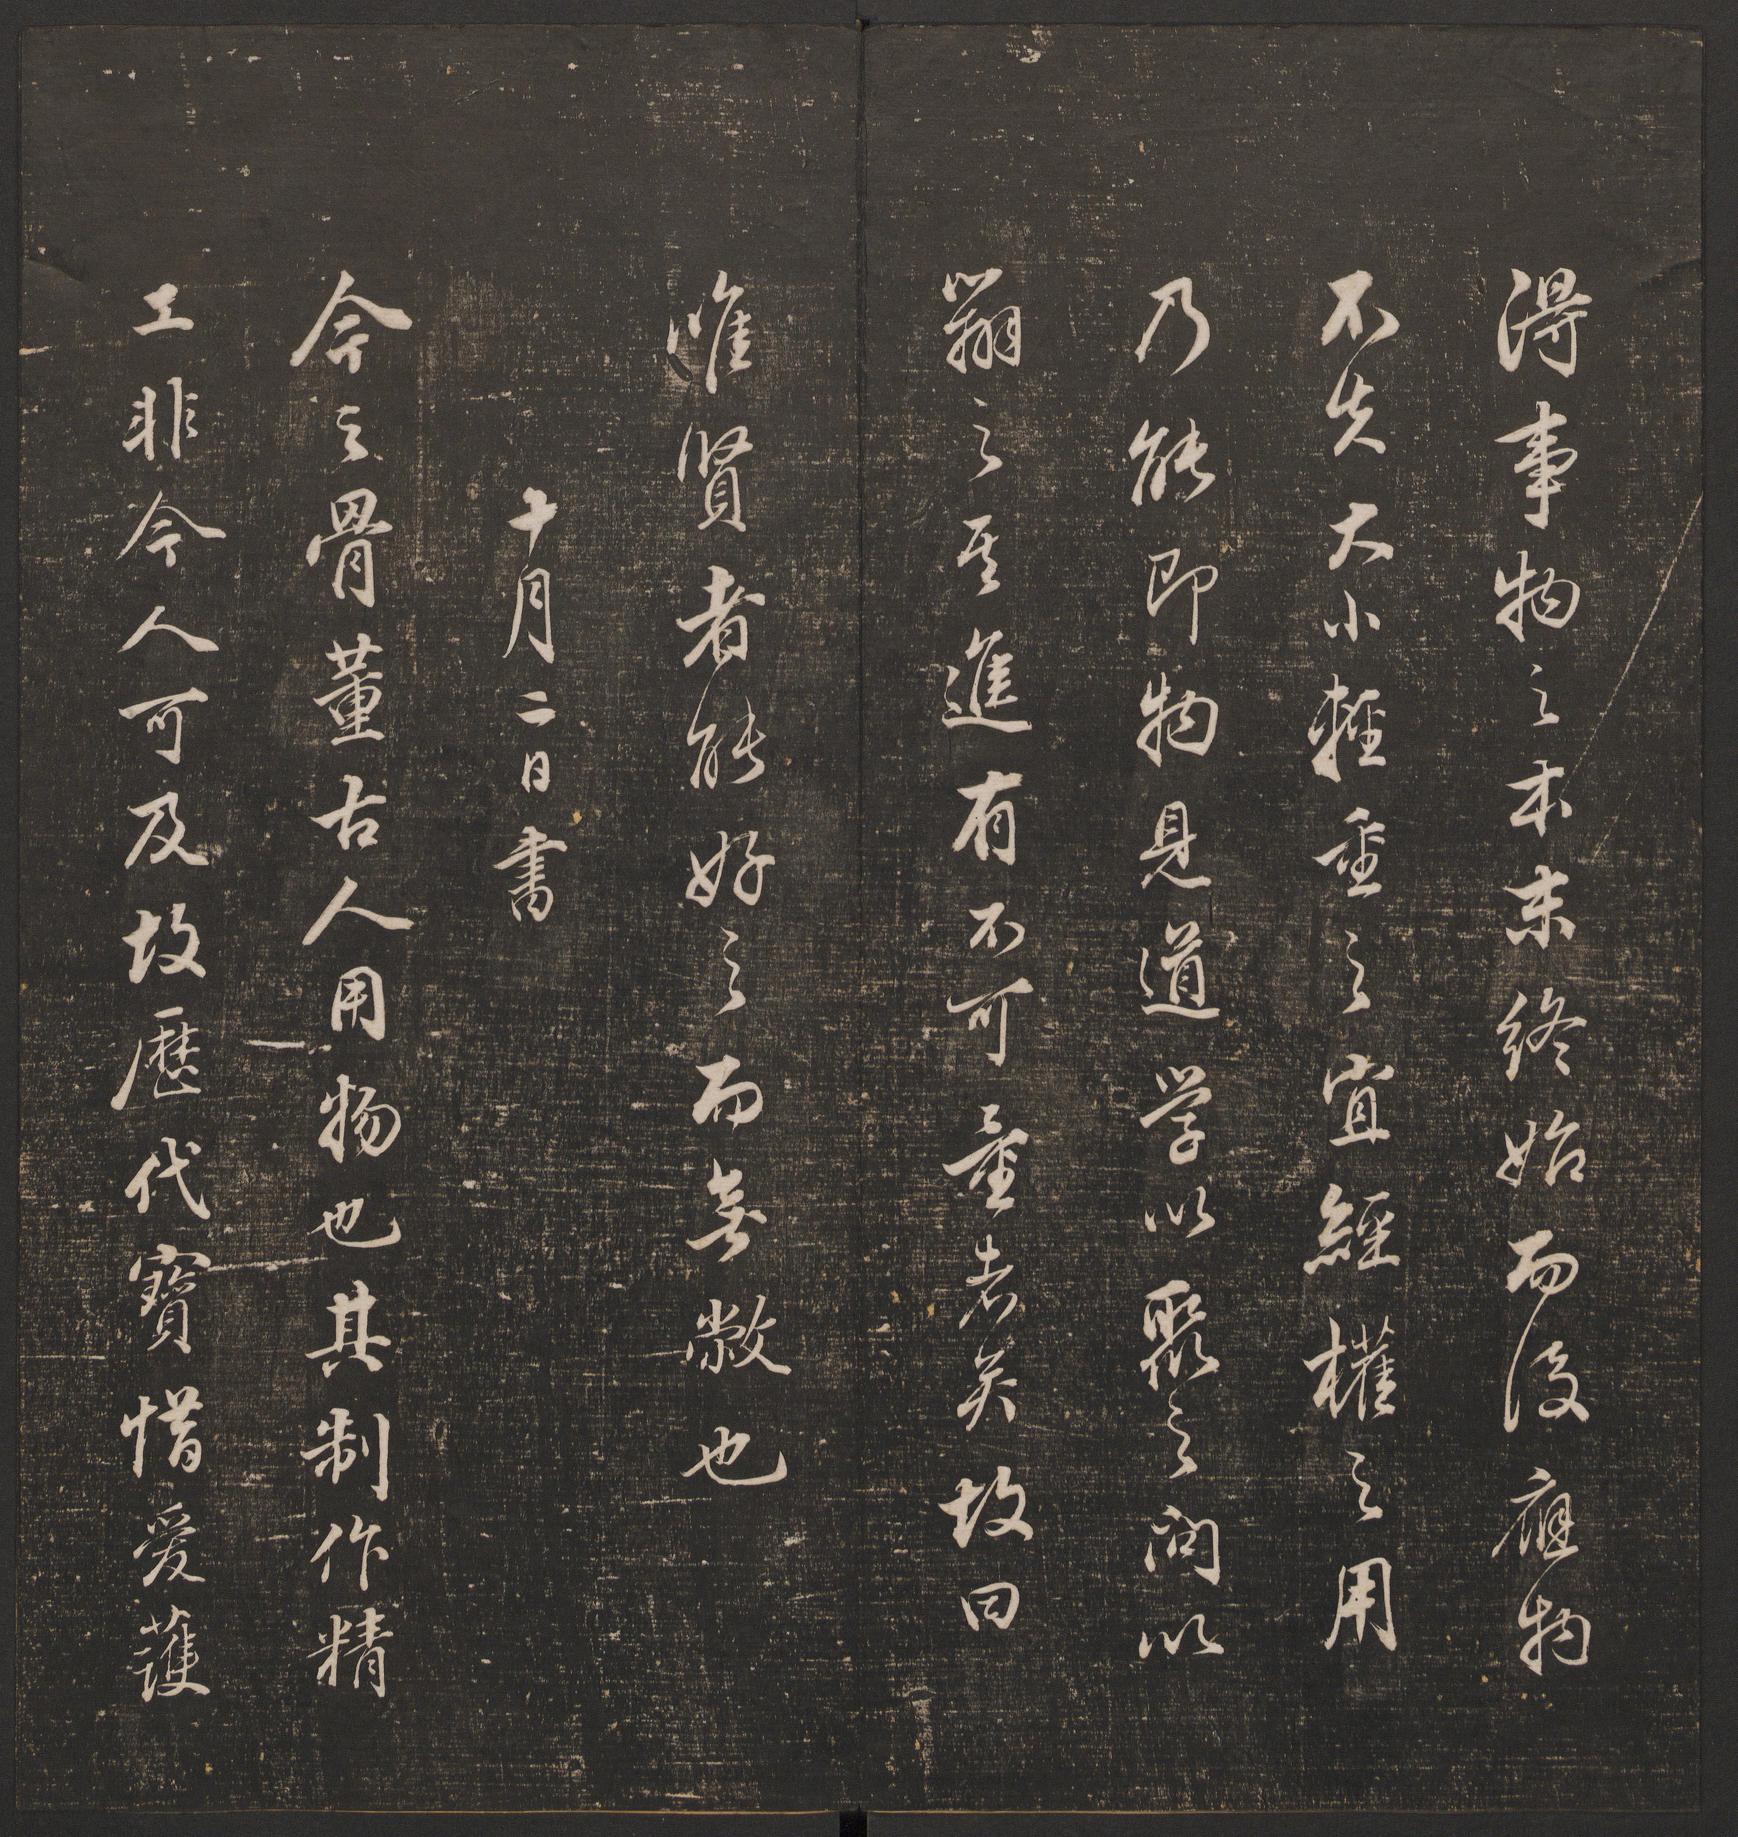 得事物之本末終始而後應物
不失大小輕重之宜經權之用
乃能即物見道學以聚之問以
辯之其進有不可量者矣故曰
唯賢者能好之而無敝也
十月二日書
今之骨董古人用物也其制作精
工非今人可及故歷代寶惜愛護